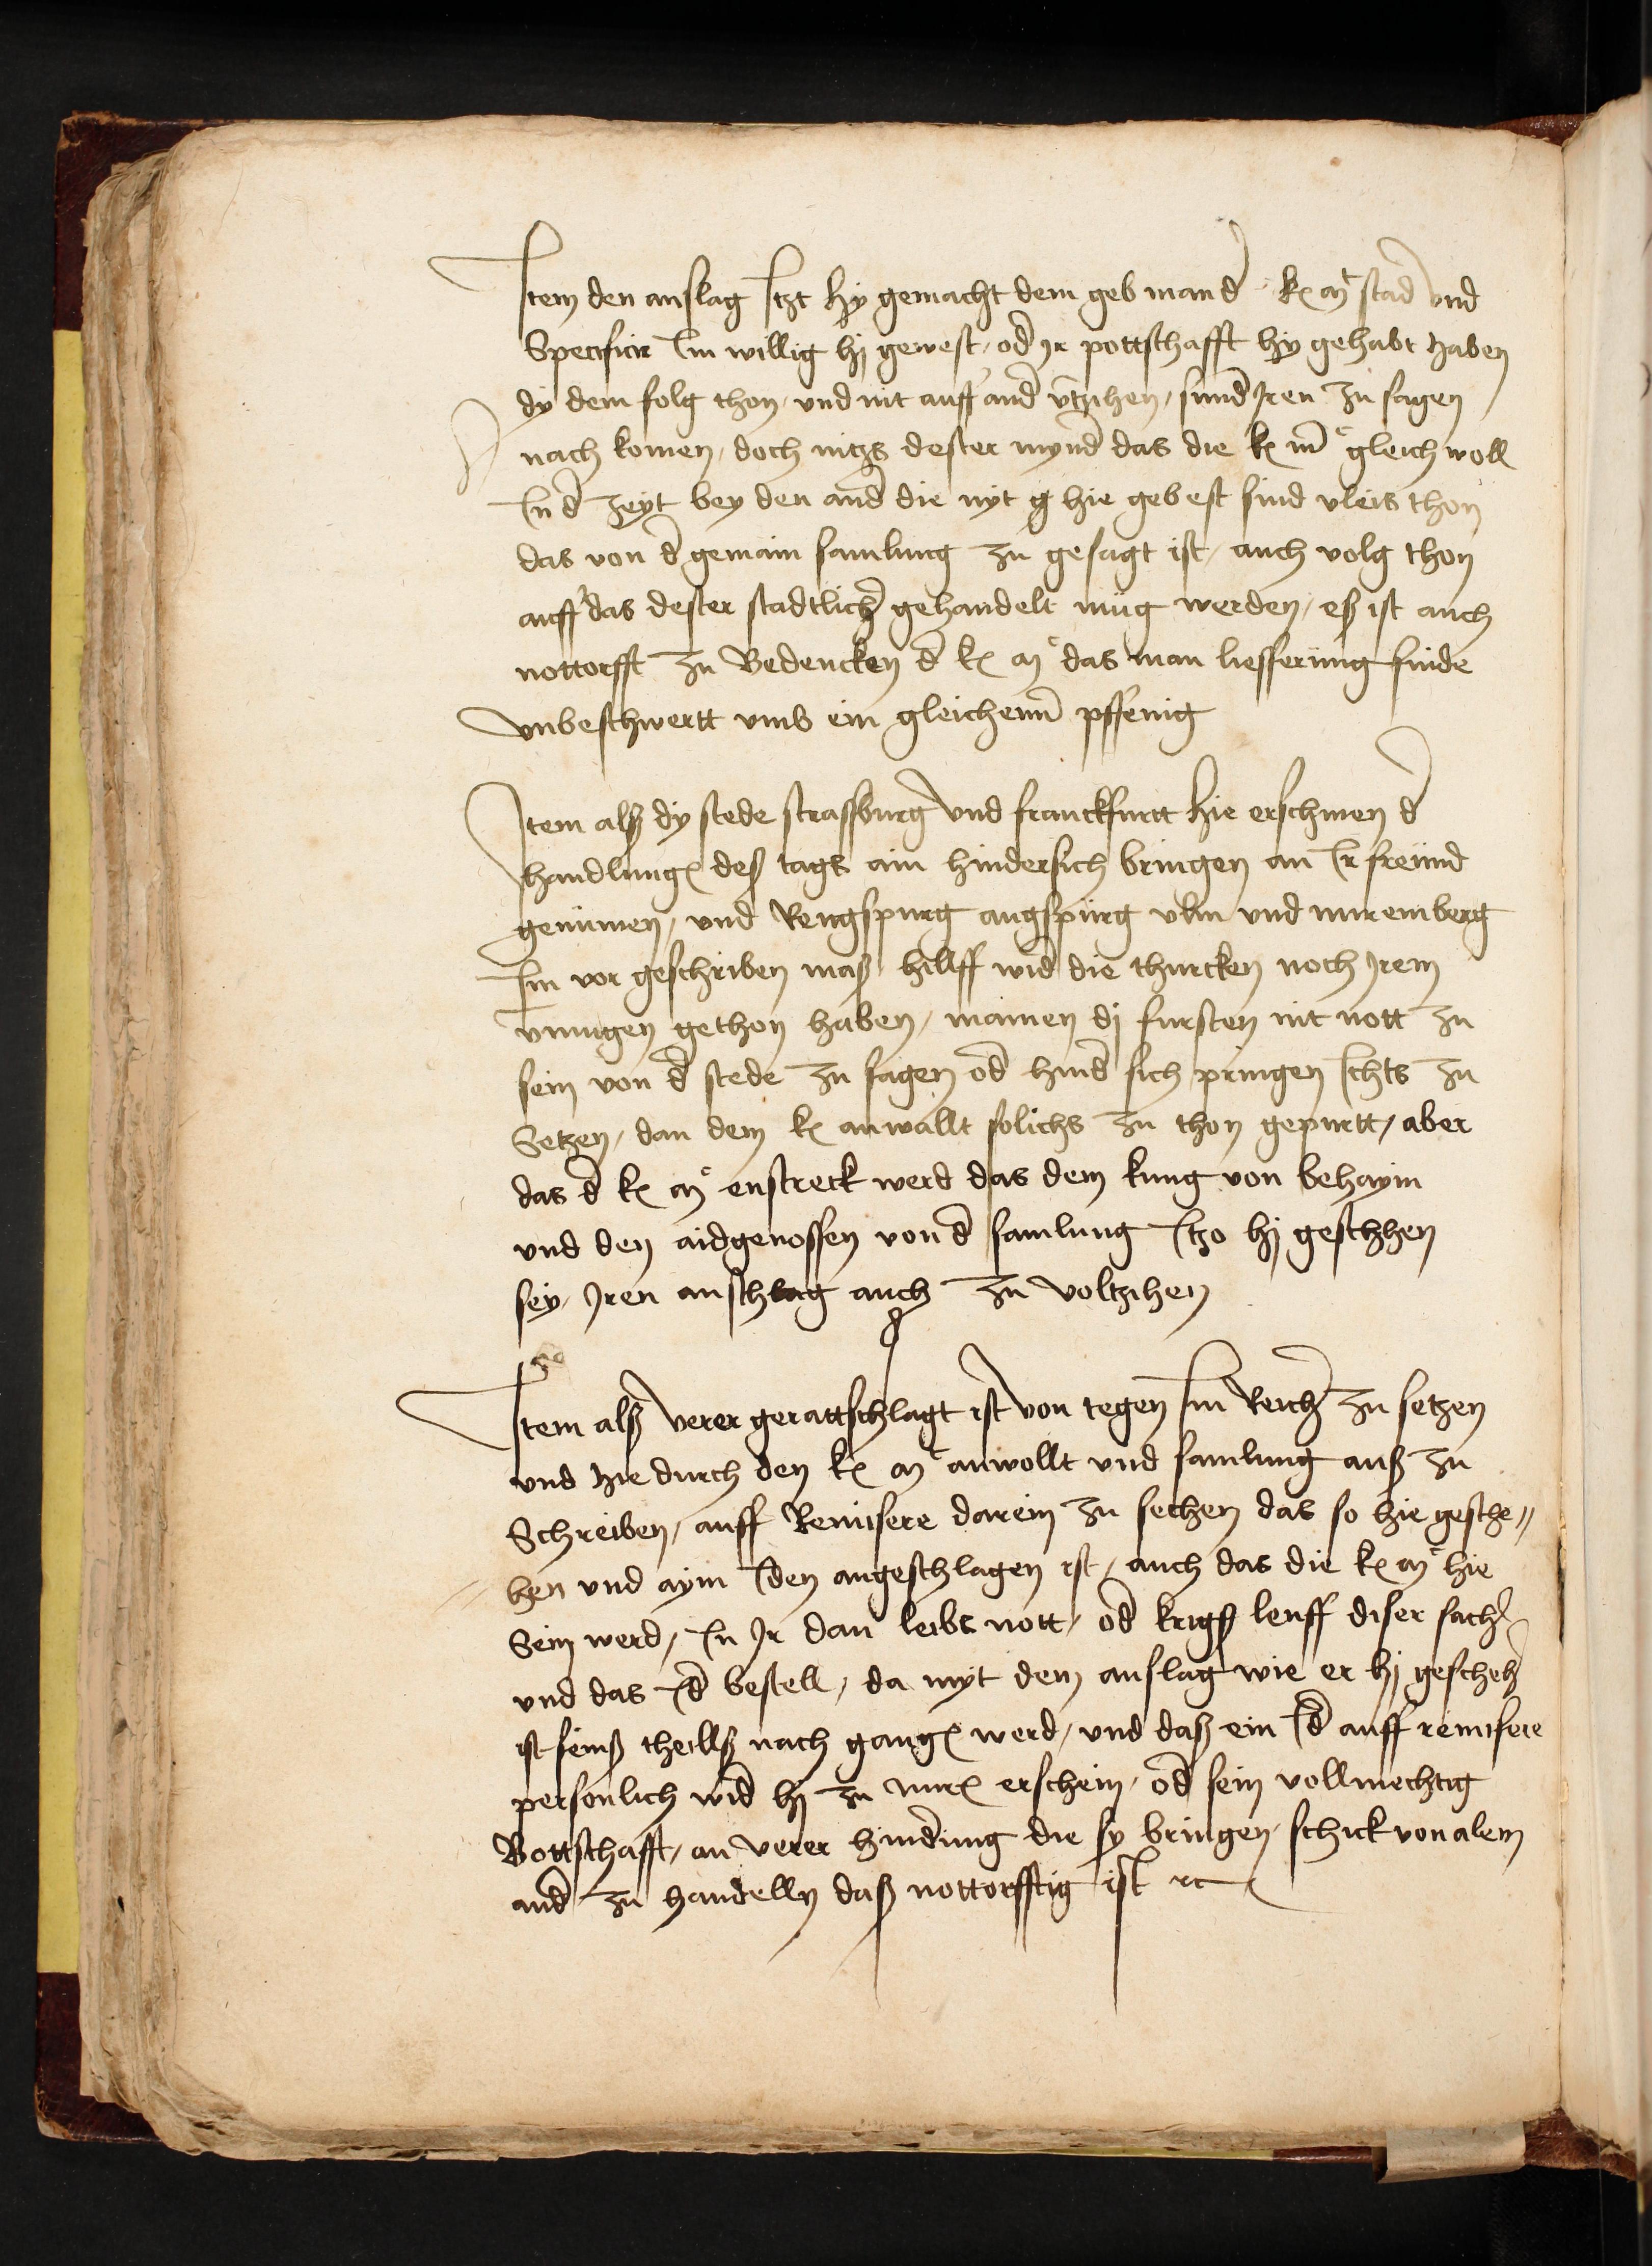 Item den anslag Itzt hy gemacht dem geb man d k m stad und
Specificir Im willig hj gewest / od yr pottschafft hy gehabt haben
dy dem folg thon / und nit auff and vtzihen / sund Iren zu sagen
nach komen / doch nichs dester mynd das die k m gleich woll
In d zeyt bey den and die nyt hie gebest sind vleis thon
das von d gemain samlung zu gesagt ist / auch volg thon
auff das dester stadtlich gehandelt mug werden / eß ist auch
nottorfft zu Bedencken d k m das man liefferung finde
vnbeschwertt vmb ein gleichenn pffenig
Item alß dy stede strassburg vnd franckfurtt hie erschinen d
handlung deß tags ain hindersich bringen an Ir freund
genumen / und Rengspurg augspurg vlm vnd nuremberg
Im vor geschriben maß hilff wid die thurcken noch Irem
vmugen gethon haben / mainen dj fursten nit nott zu
sein von d stede zu sagen od hind sich pringen Ichts zu
Setzen / dan dem k anwallt solichs zu thon gepurtt / aber
das d k m enstreck werd das dem kung von behaym
vnd den aidgenossen von d samlung Itzo hj geschhen
sey / Iren anschlag auch zu voltzihen
Item alß verer gerattschlagt ist von tegen Im Reich zu setzen
vnd hie durch den k m anwollt vnd samlung auß zu
Schreiben / auff Remisere darein zu sechen das so hie gesche //
hen vnd aym Iden angeschlagen ist / auch das die k m hie
Sein werd / In Ir dan leibs nott / od krigß leuff diser sach
vnd das Id bestell / da myt dem anslag wie er hj gescheh
ist seinß theillß nach gang werd / vnd daß ein Id auff remisere
personlich wid hj zu nur erschein / od sein vollmechtig
Bottschafft / an verer hindrung die sy bringen / schick von alem
and zu handelln daß nottorfftig ist rc